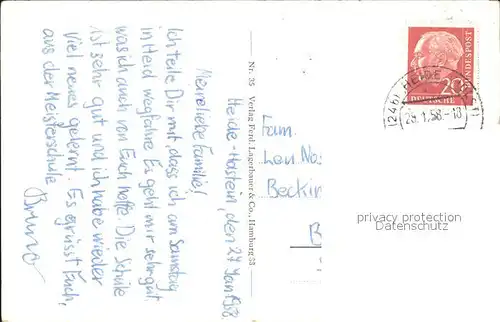 Heide-Holstein, den 27 Jan 1958.
Meine liebe Familie!
Ich teile Dir mit, dass ich am Samstag
in Heid wegfahre. Es geht mir sehr gut.
was ich auch von Euch hoffe. Die Schule
ist sehr gut und ich habe wieder
viel neues gelernt. Es grüsst Euch,
aus der Meisterschule
Bruno
Nr. 35 Verlag Ferd. Lagerbauer & Co., Hamburg 33
Fam.
Beckin
DEUTSCHE
BUNDESPOST
20
(24b) HEIDE
28.1.58-18
privacy protection
Datenschutz